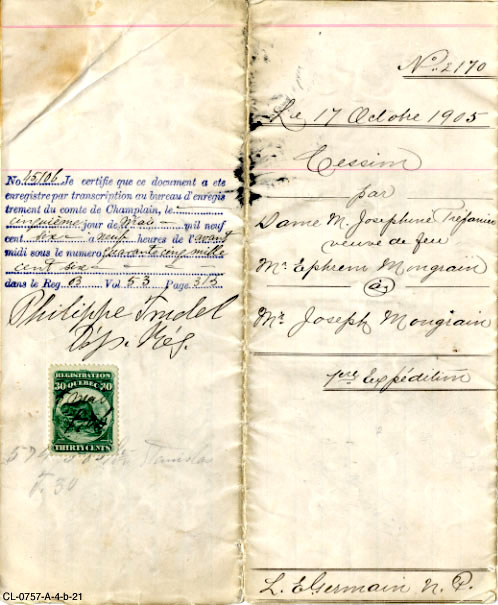 No. 45106 Je certifie que ce document a ete
enregistre par transcription au bureau d'enregis
trement du comte de Champlain, le
cinquième jour de Mai mil neuf
cent six a neuf heures de l'avant
midi sous le numero quarante cinq mille
cent six
dans le Reg. Vol 53 Page 313
Philippe Trudel
Dép. Rég.
REGISTRATION
30 QUEBEC 30
THIRTY CENTS
Stanislas
CL-0757-A-4-b-21
No. 2170
Le 17 Octobre 1905
Cession
par
Dame M. Josephine Trépanier
veuve de feu
Mr Ephrem Mongrain
à
Mr. Joseph Mongrain
1ère Expédition
L. E Germain N. P.